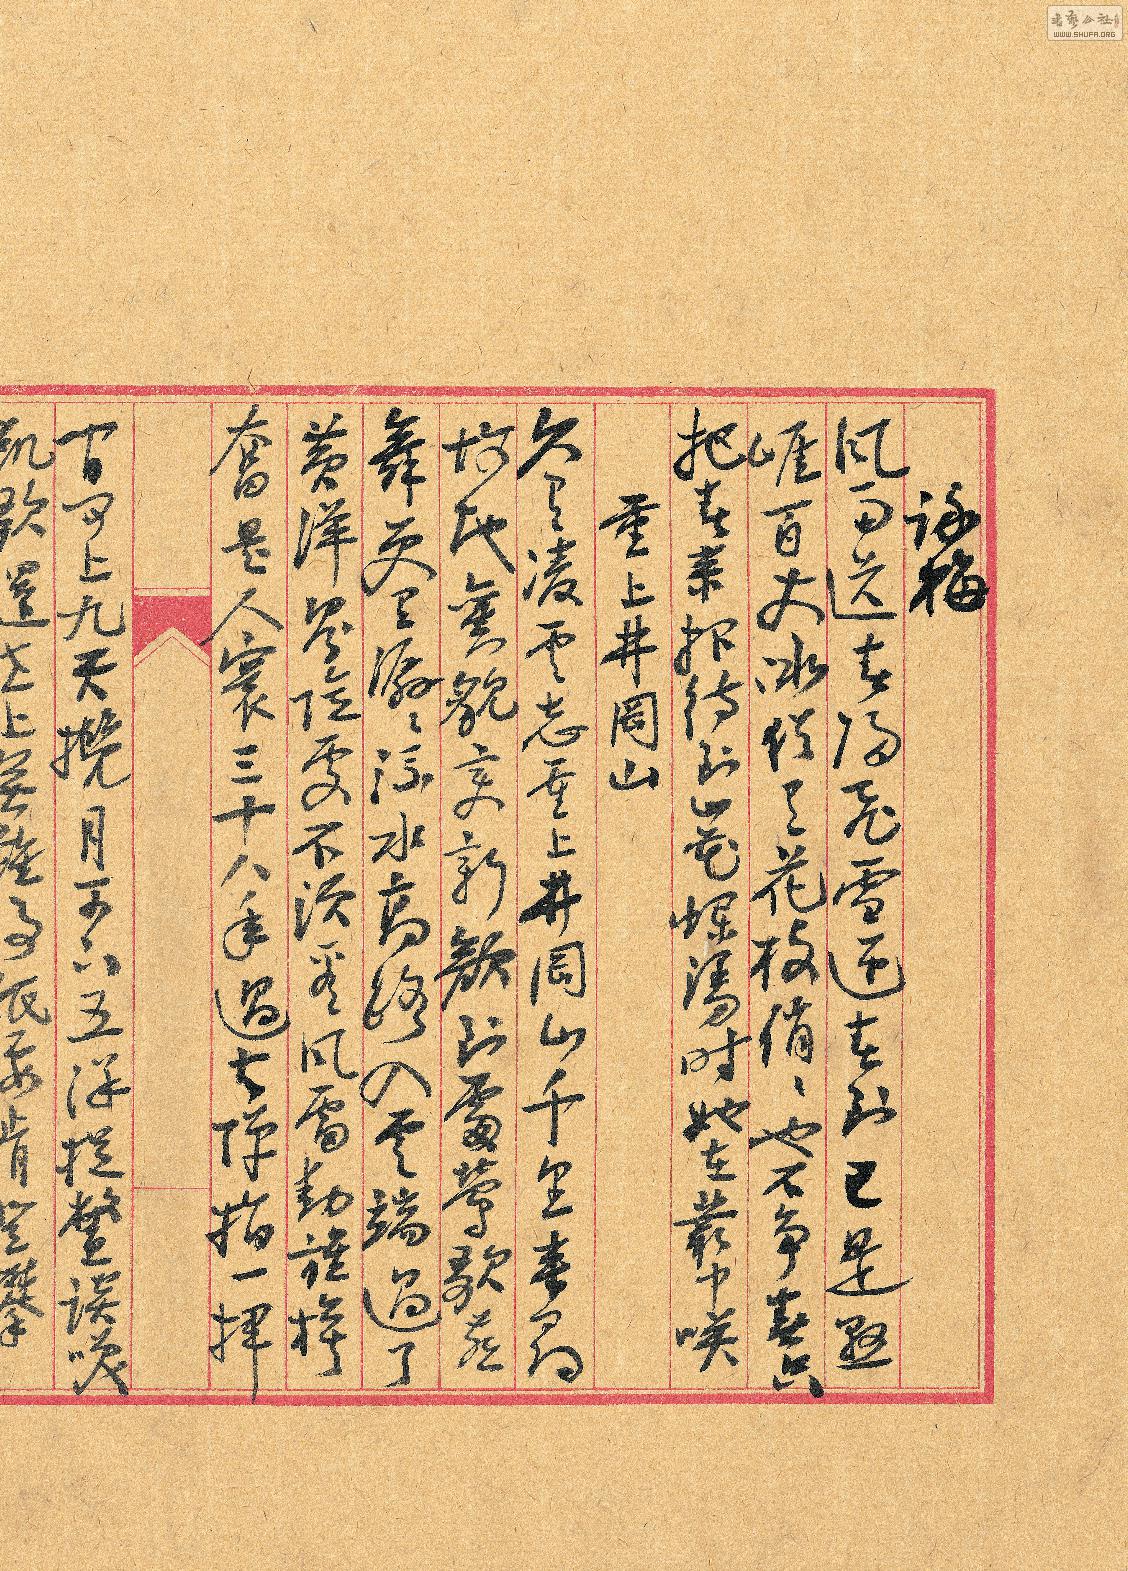 咏梅
风雨送春归飞雪迎春到已是悬
崖百丈冰犹有花枝俏俏也不争春只
把春来报待到山花烂漫时她在丛中笑
重上井冈山
久有凌云志重上井冈山千里来寻
故地旧貌变新颜到处莺歌燕
舞更有潺潺流水高路入云端过了
黄洋界险处不须看风雷动旌旗
奋是人寰三十八年过去弹指一挥
间可上九天揽月可下五洋捉鳖谈笑
凯歌还世上无难事只要肯登攀
书艺公社
WWW.SHUFA.ORG